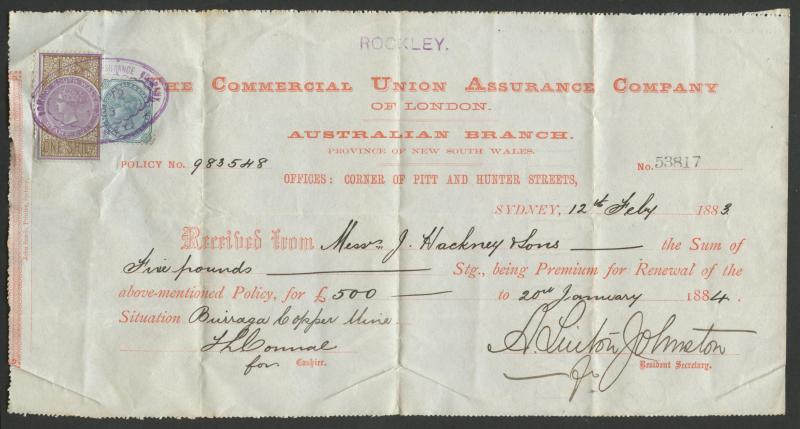 ROCKLEY.
THE COMMERCIAL UNION ASSURANCE COMPANY
OF LONDON.
AUSTRALIAN BRANCH.
PROVINCE OF NEW SOUTH WALES.
POLICY No. 983548
No. 53817
OFFICES: CORNER OF PITT AND HUNTER STREETS,
SYDNEY, 12th Feby 1883.
Received from Messrs J. Hackney & Sons the Sum of
Five pounds Stg., being Premium for Renewal of the
above-mentioned Policy, for £500 to 20th January 1884.
Situation Burraga Copper Mine
for Cashier.
Johnston
Resident Secretary.
ONE SHIL